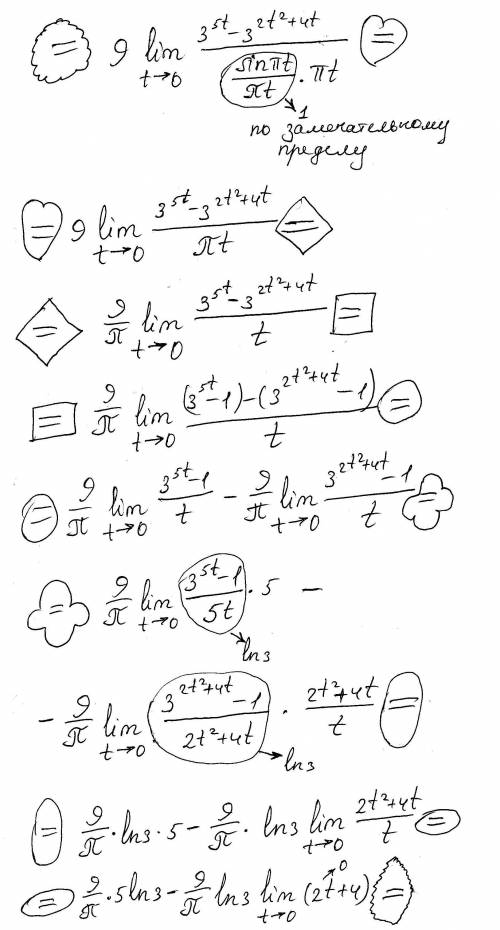 = 9 lim t→0 (3^{5t} - 3^{2t²+4t}) / ((sin πt / πt) · πt) =
1
по замечательному
пределу
= 9 lim t→0 (3^{5t} - 3^{2t²+4t}) / πt =
= 9/π lim t→0 (3^{5t} - 3^{2t²+4t}) / t =
= 9/π lim t→0 ((3^{5t} - 1) - (3^{2t²+4t} - 1)) / t =
= 9/π lim t→0 (3^{5t} - 1) / t - 9/π lim t→0 (3^{2t²+4t} - 1) / t =
= 9/π lim t→0 (3^{5t} - 1) / 5t · 5 -
ln3
- 9/π lim t→0 (3^{2t²+4t} - 1) / (2t²+4t) · (2t²+4t) / t =
ln3
= 9/π · ln3 · 5 - 9/π · ln3 lim t→0 (2t²+4t) / t =
0
= 9/π · 5 ln3 - 9/π ln3 lim t→0 (2t+4) =